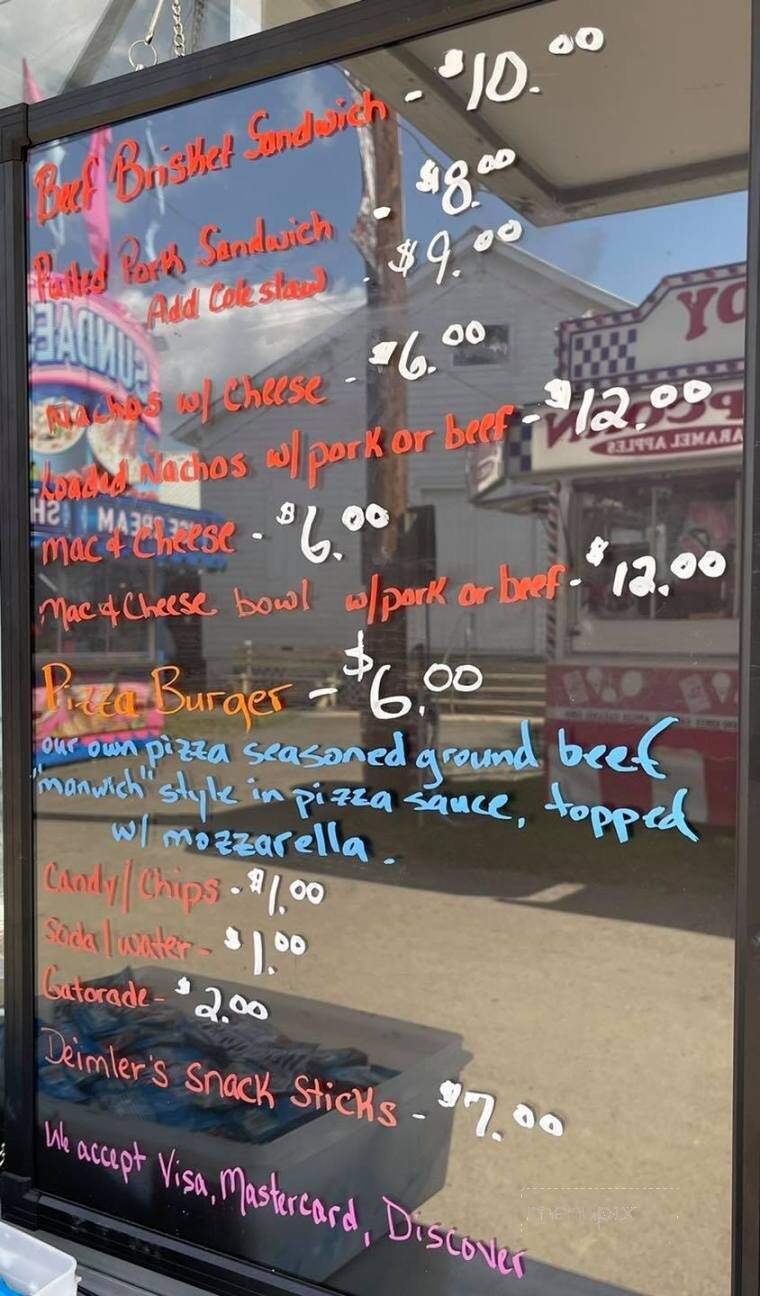 Beef Brisket Sandwich - $10.00
Pulled Pork Sandwich - $8.00
Add Coleslaw - $9.00
Nachos w/ Cheese - $6.00
Loaded Nachos w/pork or beef - $12.00
Mac & Cheese - $6.00
Mac & Cheese bowl w/pork or beef - $12.00
Pizza Burger - $6.00
our own pizza seasoned ground beef
"manwich" style in pizza sauce, topped
w/ mozzarella.
Candy/Chips - $1.00
Soda/water - $1.00
Gatorade - $2.00
Deimler's Snack Sticks - $7.00
We accept Visa, Mastercard, Discover
SUNDAE
ICE CREAM SH
OY
POPCORN
CARAMEL APPLES
menupix